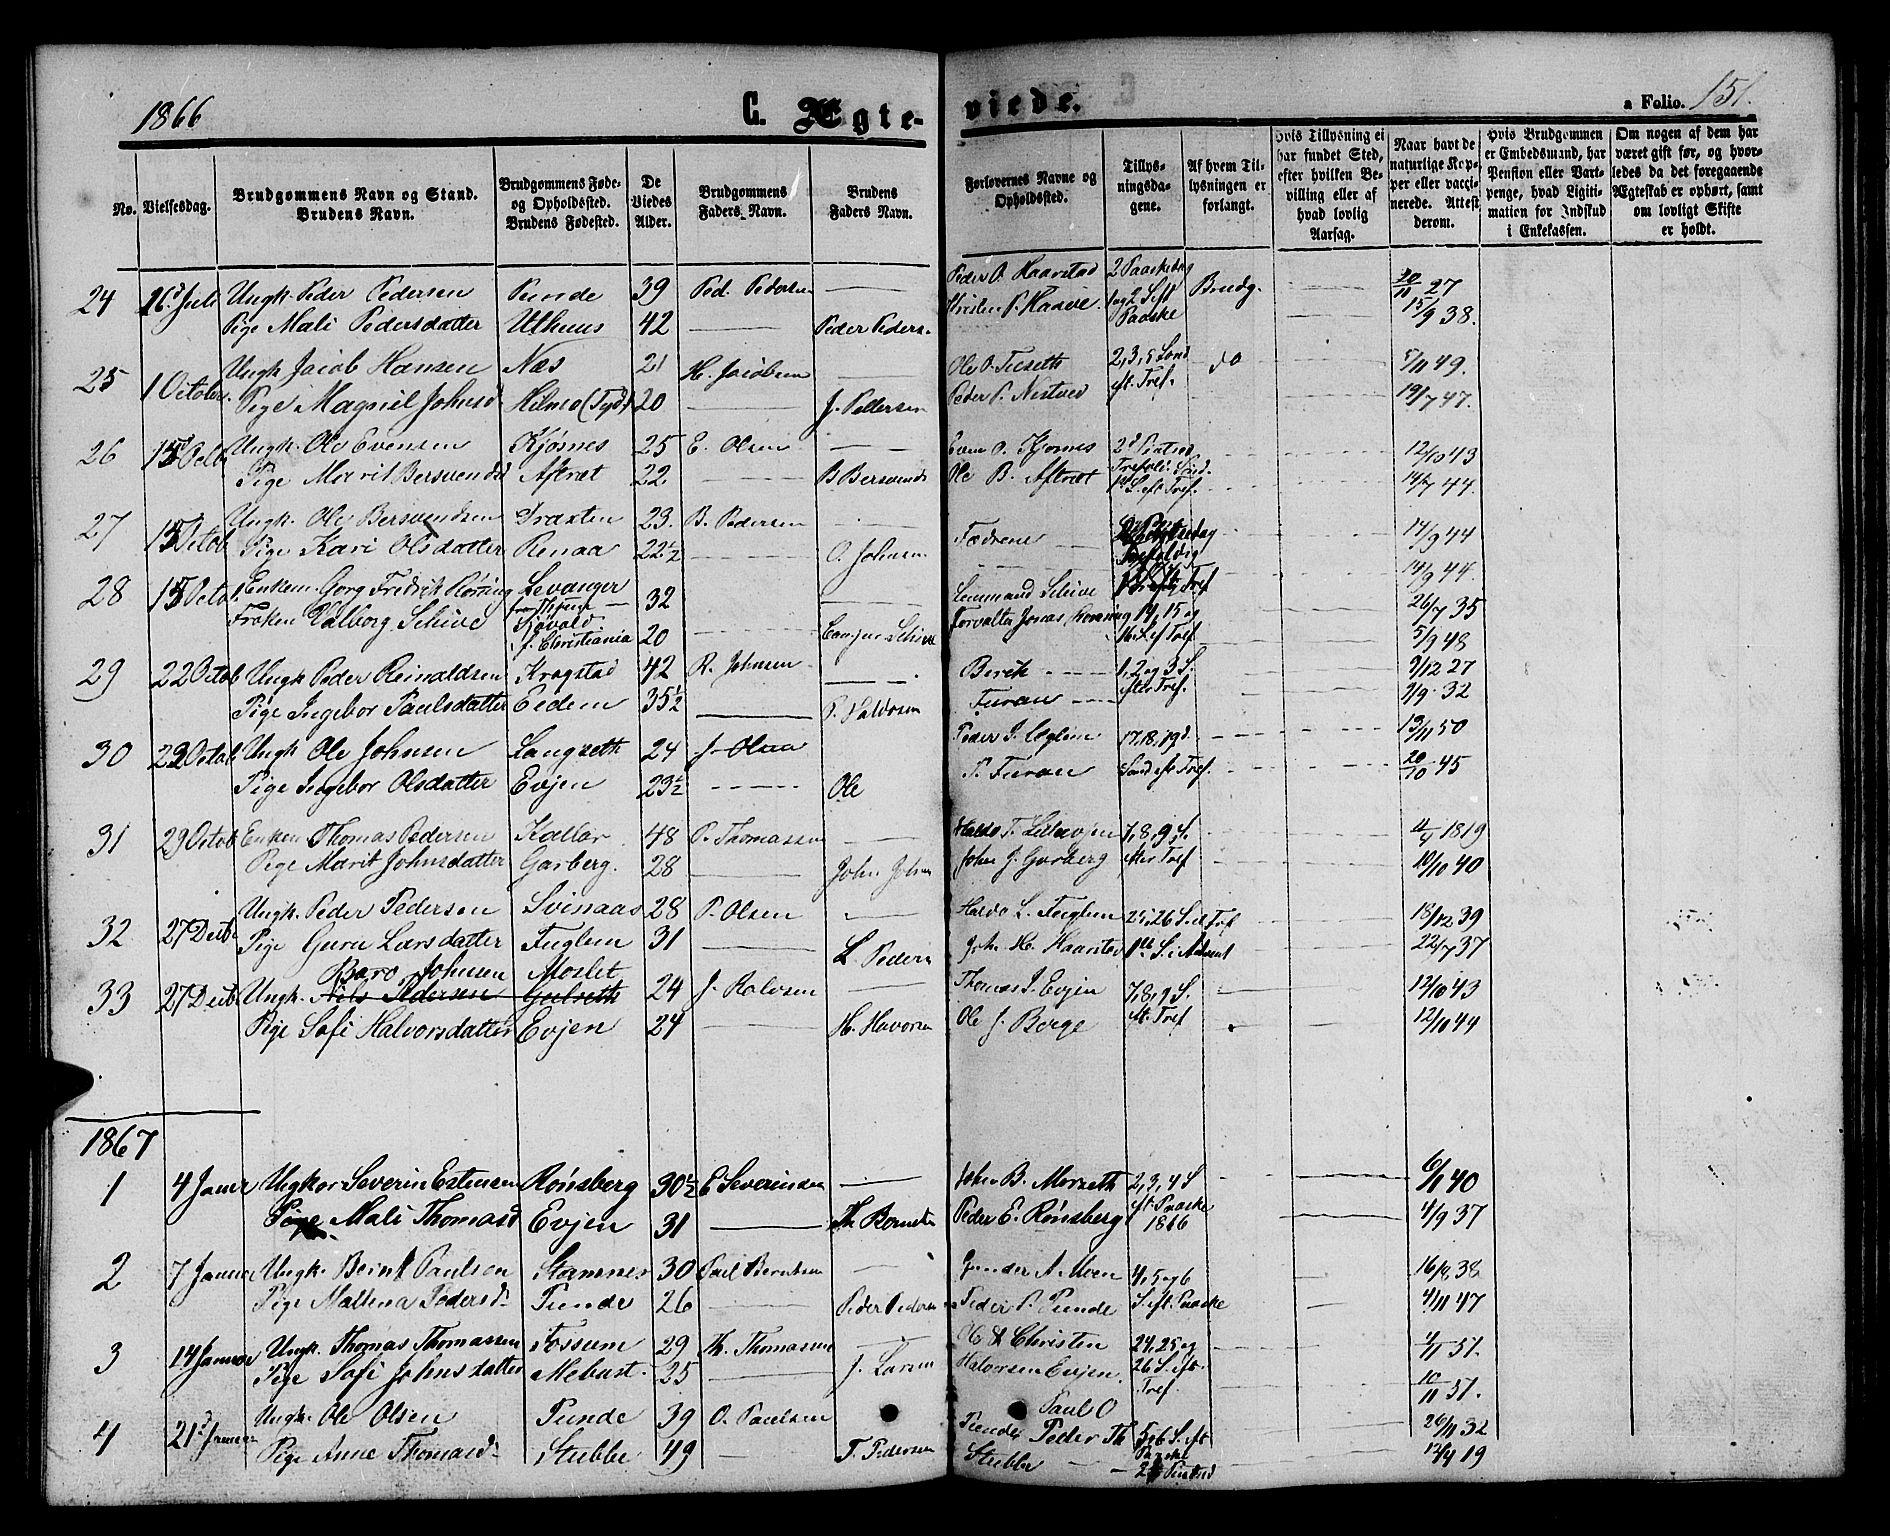 1866
C. Ægte-
viede.
a Folio. 151.
No.
Vielsesdag.
Brudgommens Navn og Stand.
Brudens Navn.
Brudgommens Føde-
og Opholdsted.
Brudens Fødested.
De
Viedes
Alder.
Brudgommens
Faders Navn.
Brudens
Faders Navn.
Forlovernes Navne og
Opholdsted.
Tillys-
ningsda-
gene.
Af hvem Til-
lysningen er
forlangt.
Hvis Tillysning ei
har fundet Sted,
efter hvilken Be-
villing eller af
hvad lovlig
Aarsag.
Naar havt de
naturlige Kop-
per eller vacci-
nerede. Attest
derom.
Hvis Brudgommen
er Embedsmand, har
Pension eller Vart-
penge, hvad Ligiti-
mation for Indskud
i Enkekassen.
Om nogen af dem har
været gift før, og hvor-
ledes da det foregaaende
Ægteskab er ophørt, samt
om lovligt Skifte
er holdt.
24 16d Juli Ungk. Peder Pedersen Punde 39 Ped. Pedersen — Peder O. Haarstad 2 Paaskedag Brudg. 20/11 27
Pige Mali Pedersdatter Uthuus 42 — Peder Peders. 1 og 2 S. eft Paaske 15/9 38.
25 1 October Ungk Jacob Hansen Næs 21 H. Jacobsen — Ole O. 2, 3, 5 Sønd do 5/11 49.
Pige Magnil Johnsd Hilmo (Tyd) 20 — J. Pettersen Peder P. eft. Tref. 19/7 47.
26 15 Octb Ungk. Ole Evensen Kjøsnes 25 E. Olsen — Even O. Kjøsnes 2d 12/10 43
Pige Marit Bersvendsd Aftret 22 — B Bersvends Ole B. Aftret 1ste S. eft Tref. 14/7 44.
27 15 Octob Ungk. Ole Bersvendsen Draxten 23. B. Pedersen — Fædrene 14/9 44
Pige Kari Olsdatter Renaa 22½ — O. Johnsen 14/9 44.
28 15 Octob. Enkem. Georg Fredrik Rørsing Levanger 32 — Lensmand Schive 26/7 35
Frøken Valborg Schive f. Christiania 20 — Schive Forvalter Jonas 14, 15 og 16 S. eft Tref. 5/9 48
29 22 Octob Ungk Peder Reinaldsen Kragstad 42 R. Johnsen — 1, 2 og 3 S. 9/12 27
Pige Ingebor Paulsdatter Eidem 35½ — P. Haldosen Furan efter Tref. 9/9 32
30 22 Octob Ungk Ole Johnsen Langseth 24 J. Olsen Peder J. Uglem 17, 18, 19d. 13/11 50
Pige Ingebor Olsdatter Evjen 23½ — Ole P. Furan Sønd eft Tref. 20/10 45
31 29 Octob Enkem Thomas Pedersen Kallar 48 P. Thomassen — Haldo T. 7, 8, 9 S. 4/4 1819
Pige Marit Johnsdatter Garberg. 28 — John Johns John J. Garberg efter Tref 10/10 40
32 27 Decb Ungk. Peder Pedersen Svinaas 28 P. Olsen — Haldo L. Fuglem 25, 26 S. eft Tref 18/12 39
Pige Guru Larsdatter Fuglem 31 — L. Peders John H. Haarstad 1ste S. i Advent 22/7 37
Baro Johnsen Moslet
33 27 Decb Ungk. Nils Pedersen Gulseth 24 J. Halvsen — Thomas J. Evjen 7, 8, 9 S. 12/10 43
Pige Sofi Halvorsdatter Evjen 24 — H. Havorsen Ole J. Berge eft. Tref 12/10 44
1867
1 4 Janur Ungkar Severin Estensen Rønsberg 30½ E Severinsen — John B. Morseth 2, 3, 4 S 6/1 40
Pige Mali Thomasd Evjen 31 — Th Bernsten Peder E. Rønsberg eft. Paaske 1866 4/9 37
2 7 Januar Ungk. Bernt Paulsen Stamnes 30 Paul Berntsen — Gunder A. Moen 4, 5 og 6 16/8 38
Pige Mallena Pedersd. Punde 26 — Peder Pedersen Peder P. Punde S. eft. Paaske 4/11 47
3 14 Januar Ungk. Thomas Thomassen Fossum 29 Th. Thomassen — Ole & Christen 24, 25 og 4/1 51.
Pige Sofi Johnsdatter Mebust. 25 — J. Larsen Halvorsen Evjen 26 S. eft. Tref. 10/11 51.
4 21d Januar Ungk. Ole Olsen Punde 39 O. Paulsen Paul O Punde 26/11 32
Pige Anne Thomasd. Stubbe 49 — T. Pedersen Peder Th Stubbe 5 og 6 S. eft Paaske 12/4 19